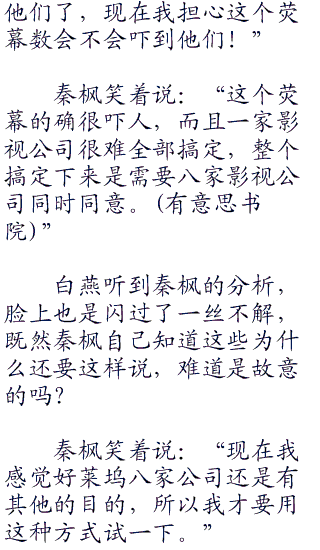 他们了，现在我担心这个荧
幕数会不会吓到他们！”
秦枫笑着说：“这个荧
幕的确很吓人，而且一家影
视公司很难全部搞定，整个
搞定下来是需要八家影视公
司同时同意。(有意思书
院)”
白燕听到秦枫的分析，
脸上也是闪过了一丝不解，
既然秦枫自己知道这些为什
么还要这样说，难道是故意
的吗？
秦枫笑着说：“现在我
感觉好菜坞八家公司还是有
其他的目的，所以我才要用
这种方式试一下。”